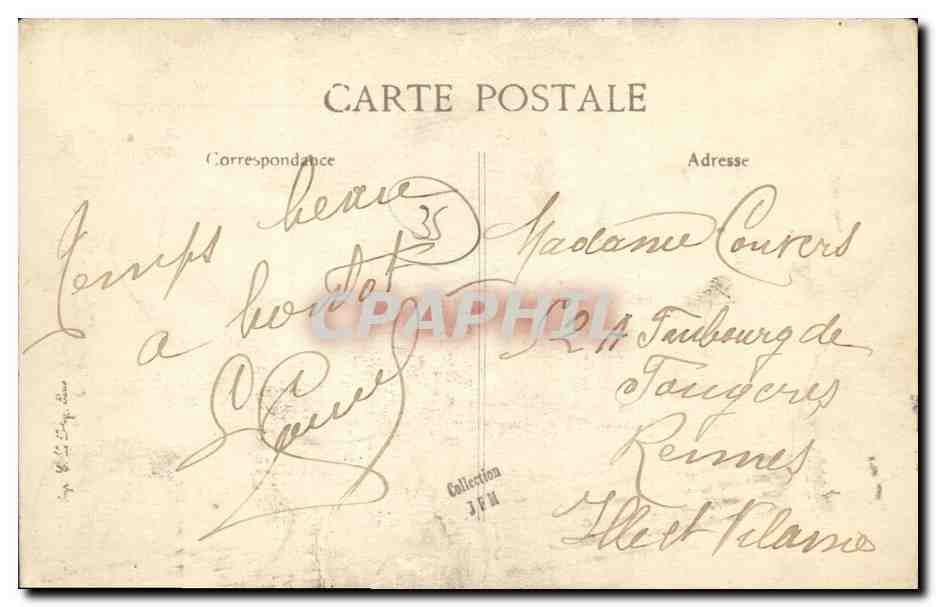 CARTE POSTALE
Correspondance
Adresse
Temps beau
35
a bientot
Madame Couvers
52 A Faubourg de
Fougeres
Rennes
Ille et Vilaine
CPAPHIL
Collection
J F M